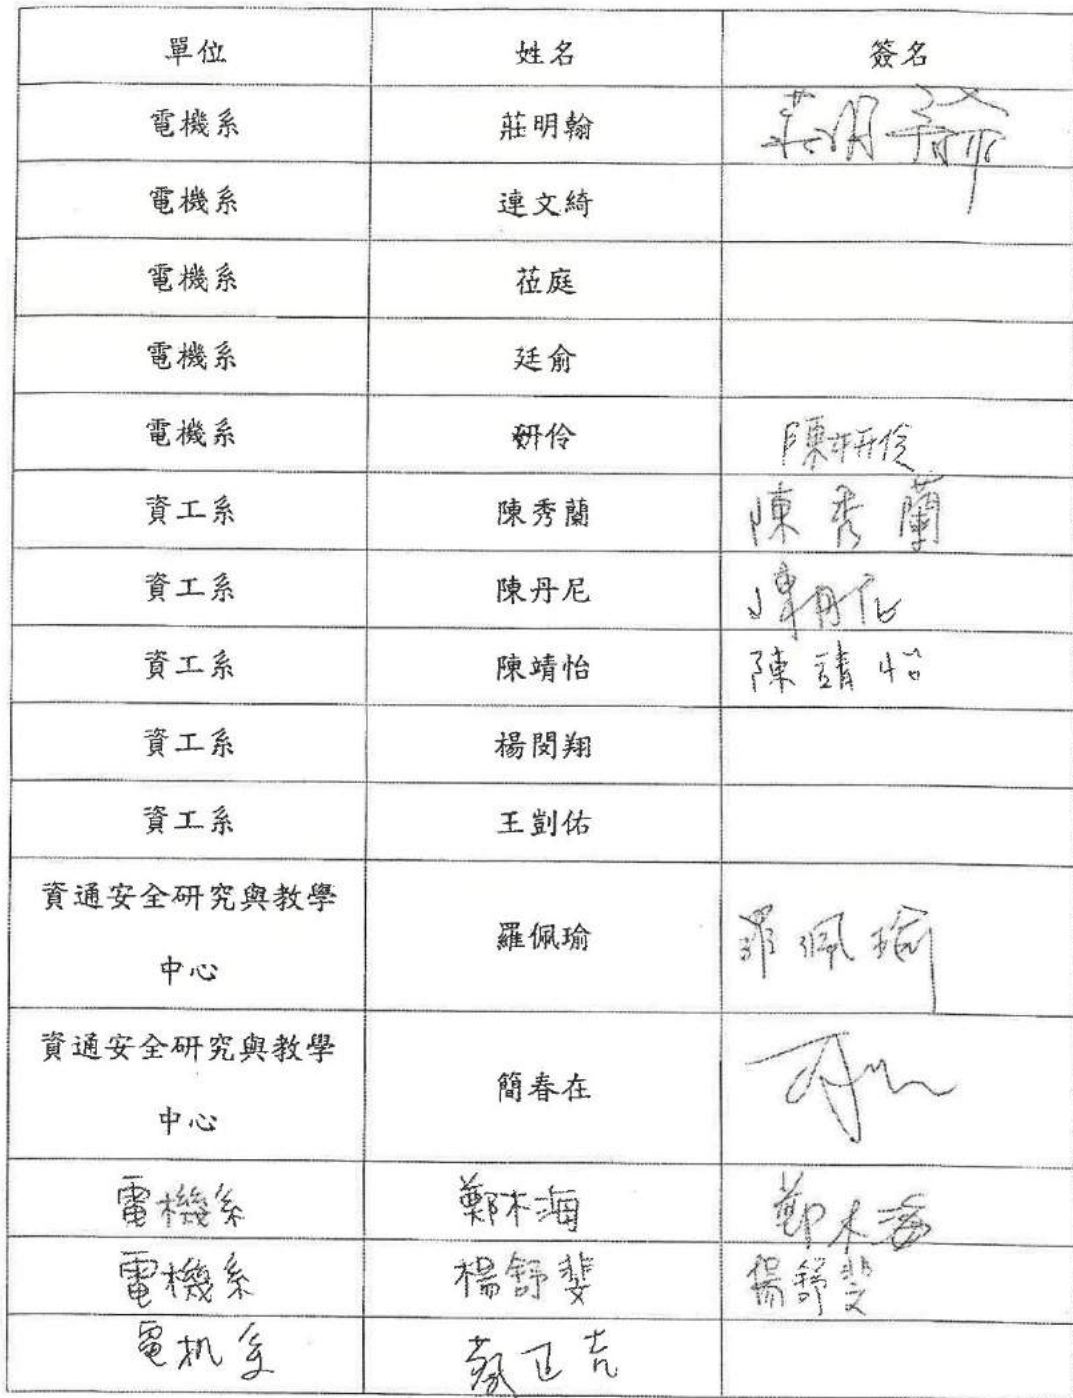 單位 姓名 簽名
電機系 莊明翰 莊明翰
電機系 連文綺
電機系 莅庭
電機系 廷俞
電機系 妍伶 陳妍伶
資工系 陳秀蘭 陳秀蘭
資工系 陳丹尼 陳丹尼
資工系 陳靖怡 陳靖怡
資工系 楊閔翔
資工系 王劉佑
資通安全研究與教學
中心
羅佩瑜 羅珮瑜
資通安全研究與教學
中心
簡春在
電機系 鄭木海 鄭木海
電機系 楊舒斐 楊舒斐
電机系 蔡正吉